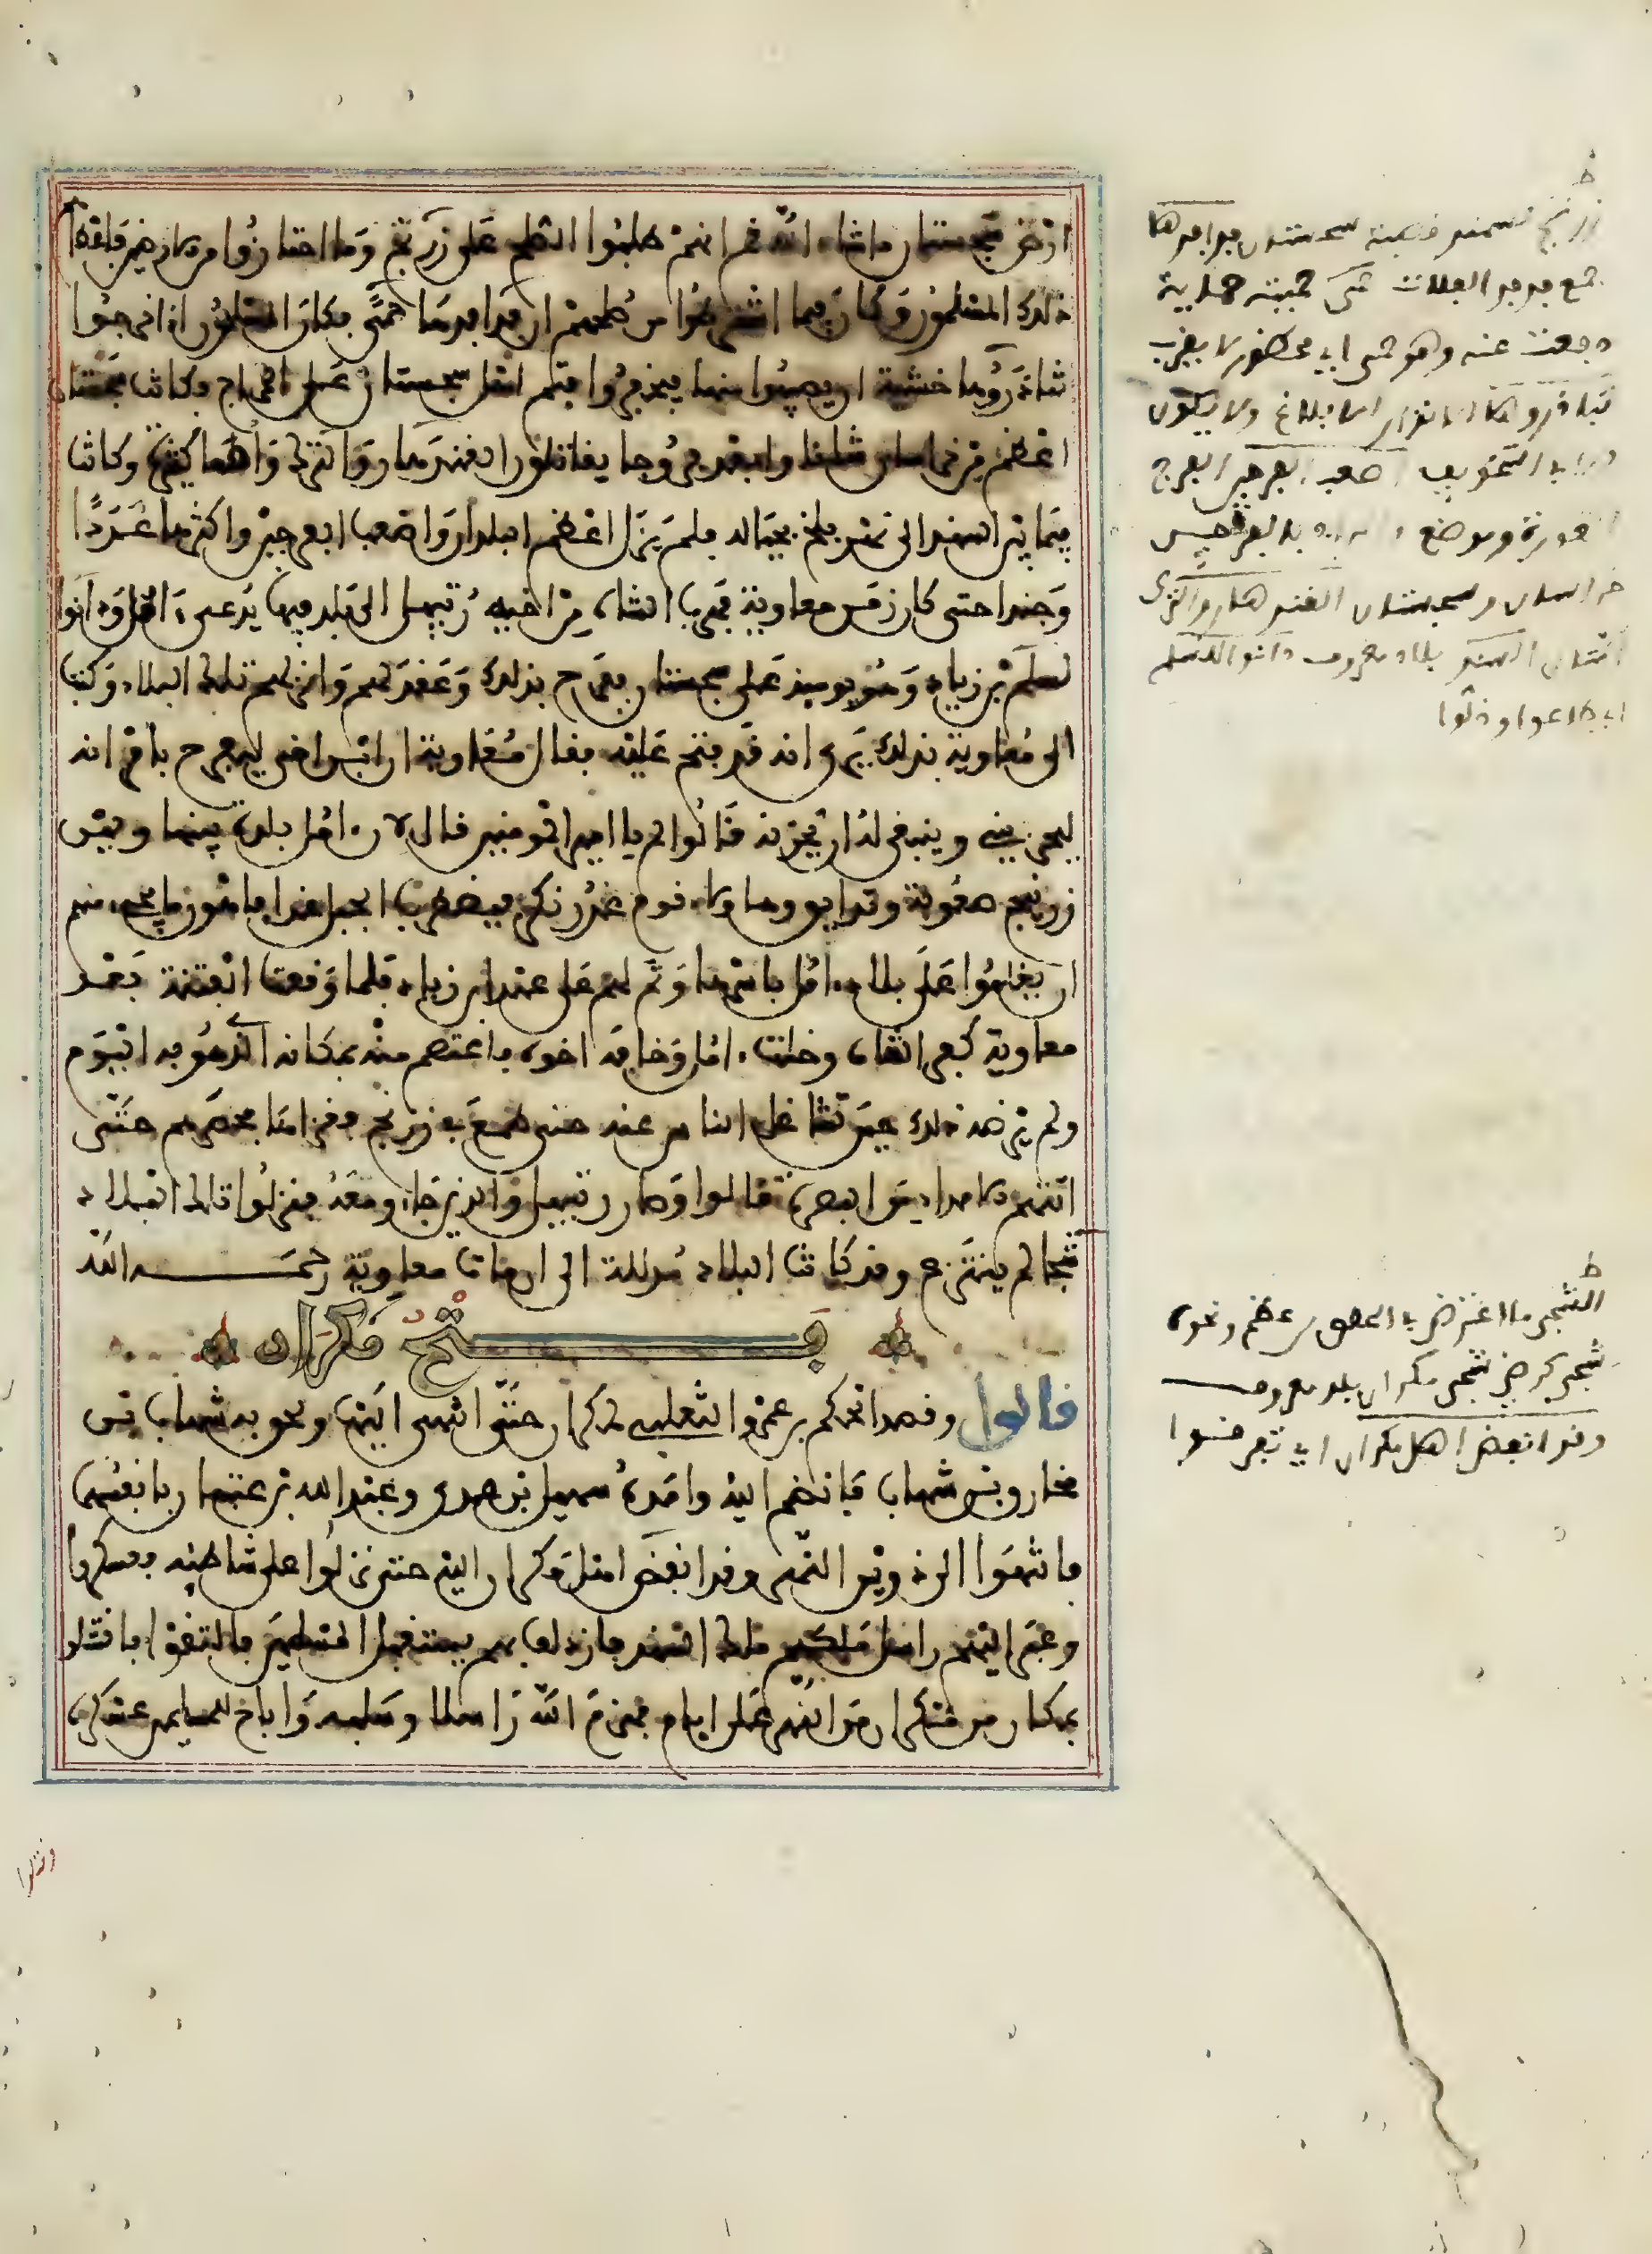 ارض سجستان ما شاء الله ثم انهم طلبوا الصلح على زرنج وما احتازوا من الارضين فاعطاهم
ذلك المسلمون وكان فيما اشترطوا من صلحهم ان فدافدها حمى فكان المسلمون اذا خرجوا
تناذروها خشية ان يصيبوا منها فيخفروا فتم اهل سجستان على الخراج وكانت سجستان
اعظم من خراسان شانا وابعد فروجا يقاتلون القندهار والترك وامما كثيرة وكانت
فيما بين السند الى نهر بلخ بحياله فلم يزل اعظم البلدان واصعب الفرجين واكثرها عددا
وجندا حتى كان زمن معاوية فهرب الشاه من اخيه رتبيل الى بلد فيها يدعى ءامل ودانوا
لسلم بن زياد وهو يوميذ على سجستان ففرح بذلك وعقد لهم وانزلهم تلك البلاد وكتب
الى معاوية بذلك يرى انه قد فتح عليه فقال معاوية ان ابن اخي ليفرح بامر انه
ليحزنني وينبغي له ان يحزنه قالوا لم يا امير المومنين قال لان ءامل بلدة بينها وبين
زرنج صعوبة وتضايق وهاولاء قوم غدر نكر فيضطرب الحبل غدا فاهون ما يجيء منهم
ان يغلبوا على بلاد ءامل باسرها وتم لهم على عهد ابن زياد فلما وقعت الفتنة بعد
معاوية كفر الشاه وغلب ءامل وخافه اخوه فاعتصم منه بمكانه الذي هو به اليوم
ولم يرضه ذلك حين تشاغل الناس عنه حتى طمع في زرنج فغزاها فحصرهم حتى
اتتهم الامداد من البصرة قالوا وصار رتبيل والذين جاءوا معه فنزلوا تلك البلاد
شجا لم ينتزع وقد كانت البلاد مذللة الى ان مات معاوية رحمه الله
فتح مكران
قالوا وقصد الحكم بن عمرو التغلبي لمكران حتى انتهى اليها ولحق به شهاب بن
مخارق بن شهاب فانضم اليه وامده سهيل بن عدي وعبد الله بن عتبان بانفسهما
فانتهوا الى دوين النهر وقد انفض اهل مكران اليه حتى نزلوا على شاطئه فعسكروا
وعبر اليهم راسل ملكهم ملك السند فازدلف بهم يستقبل المسلمين فالتقوا فاقتتلوا
بمكان من مكران من النهر على ايام فهزم الله راسلا وسلبه واباح للمسلمين عسكره
وقتلوا
ط
زرنج قصبة سجستان فدافدها
جمع فدفد الفلاة حمى
خراسان وسجستان القندهار والترك
السند بلاد معروف دانوا لسلم
اي اطاعوا وذلوا
ط
الشجى ما اعترض في الحلق من عظم ونحوه
شجي كرضي شجى مكران بلد معروف
وقد انفض اهل مكران اي تفرقوا